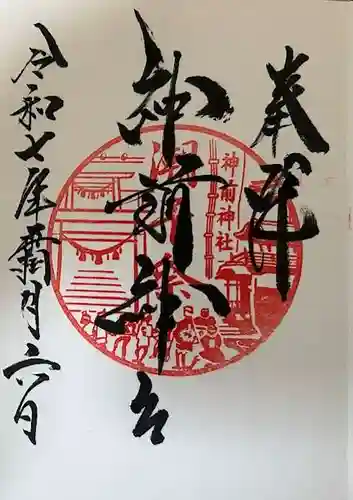 奉拝
神前神社
神前神社
令和七年霜月六日